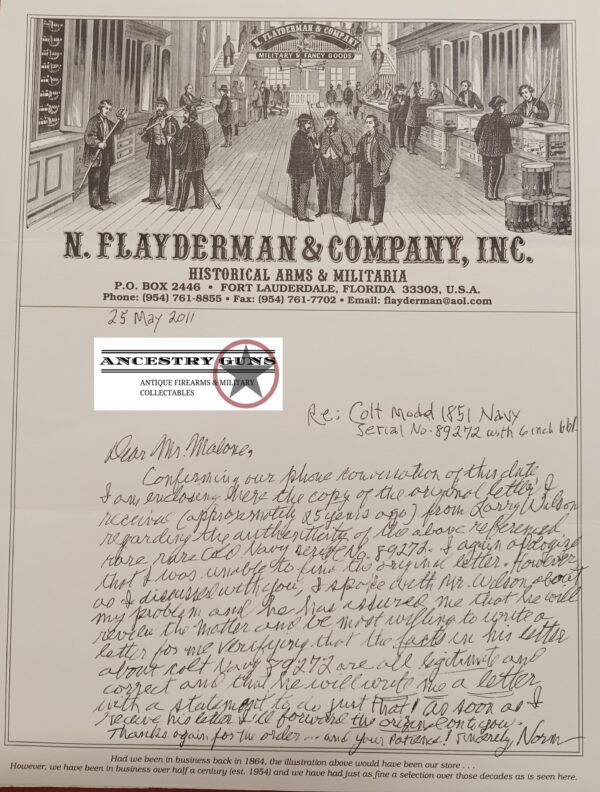 N. FLAYDERMAN & COMPANY
MILITARY & FANCY GOODS
N. FLAYDERMAN & COMPANY, INC.
HISTORICAL ARMS & MILITARIA
P.O. BOX 2446 • FORT LAUDERDALE, FLORIDA 33303, U.S.A.
Phone: (954) 761-8855 • Fax: (954) 761-7702 • Email: flayderman@aol.com
25 May 2011
ANCESTRY GUNS
ANTIQUE FIREARMS & MILITARY
COLLECTABLES
Re: Colt Model 1851 Navy
Serial No. 89272 with 6 inch bbl.
Dear Mr. Malone,
Confirming our phone conversation of this date
I am enclosing here the copy of the original letter I
received (approximately 25 years ago) from Larry Wilson
regarding the authenticity of the above referenced
rare rare Colt Navy serial No. 89272. I again apologize
that I was unable to find the original letter. However
as I discussed with you, I spoke with Mr. Wilson about
my problem and he has assured me that he will
review the matter and be most willing to write a
letter for me verifying that the facts in his letter
about Colt Navy 89272 are all legitimate and
correct and that he will write me a letter
with a statement to do just that! As soon as I
receive his letter I'll forward the original on to you.
Thanks again for the order... and your patience! Sincerely, Norm
Had we been in business back in 1864, the illustration above would have been our store . . .
However, we have been in business over half a century (est. 1954) and we have had just as fine a selection over those decades as is seen here.